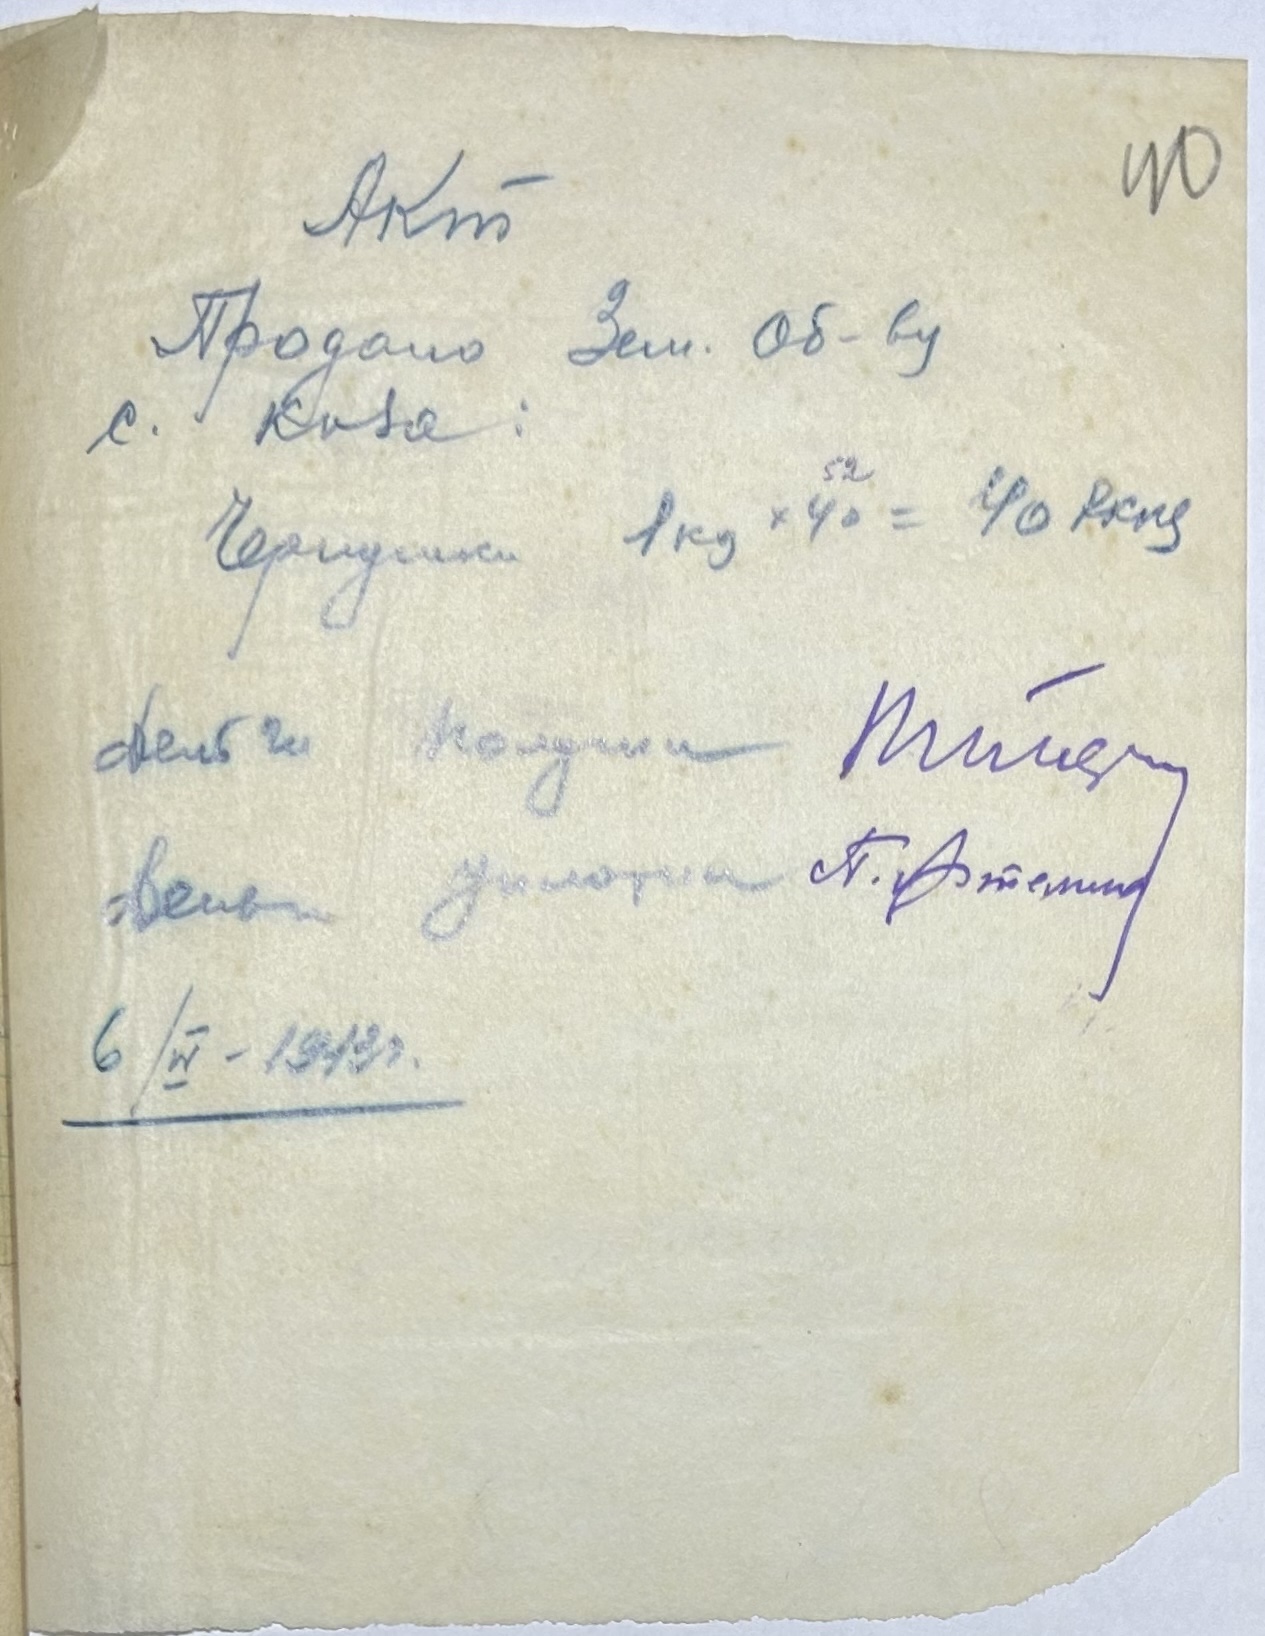 40
Акт
Продано Зем. Об-ву
с. :
Чернушки 1 кг × 40 = 40 
52
Деньги получил
Деньги уплотил П.
6/IV - 1943 г.